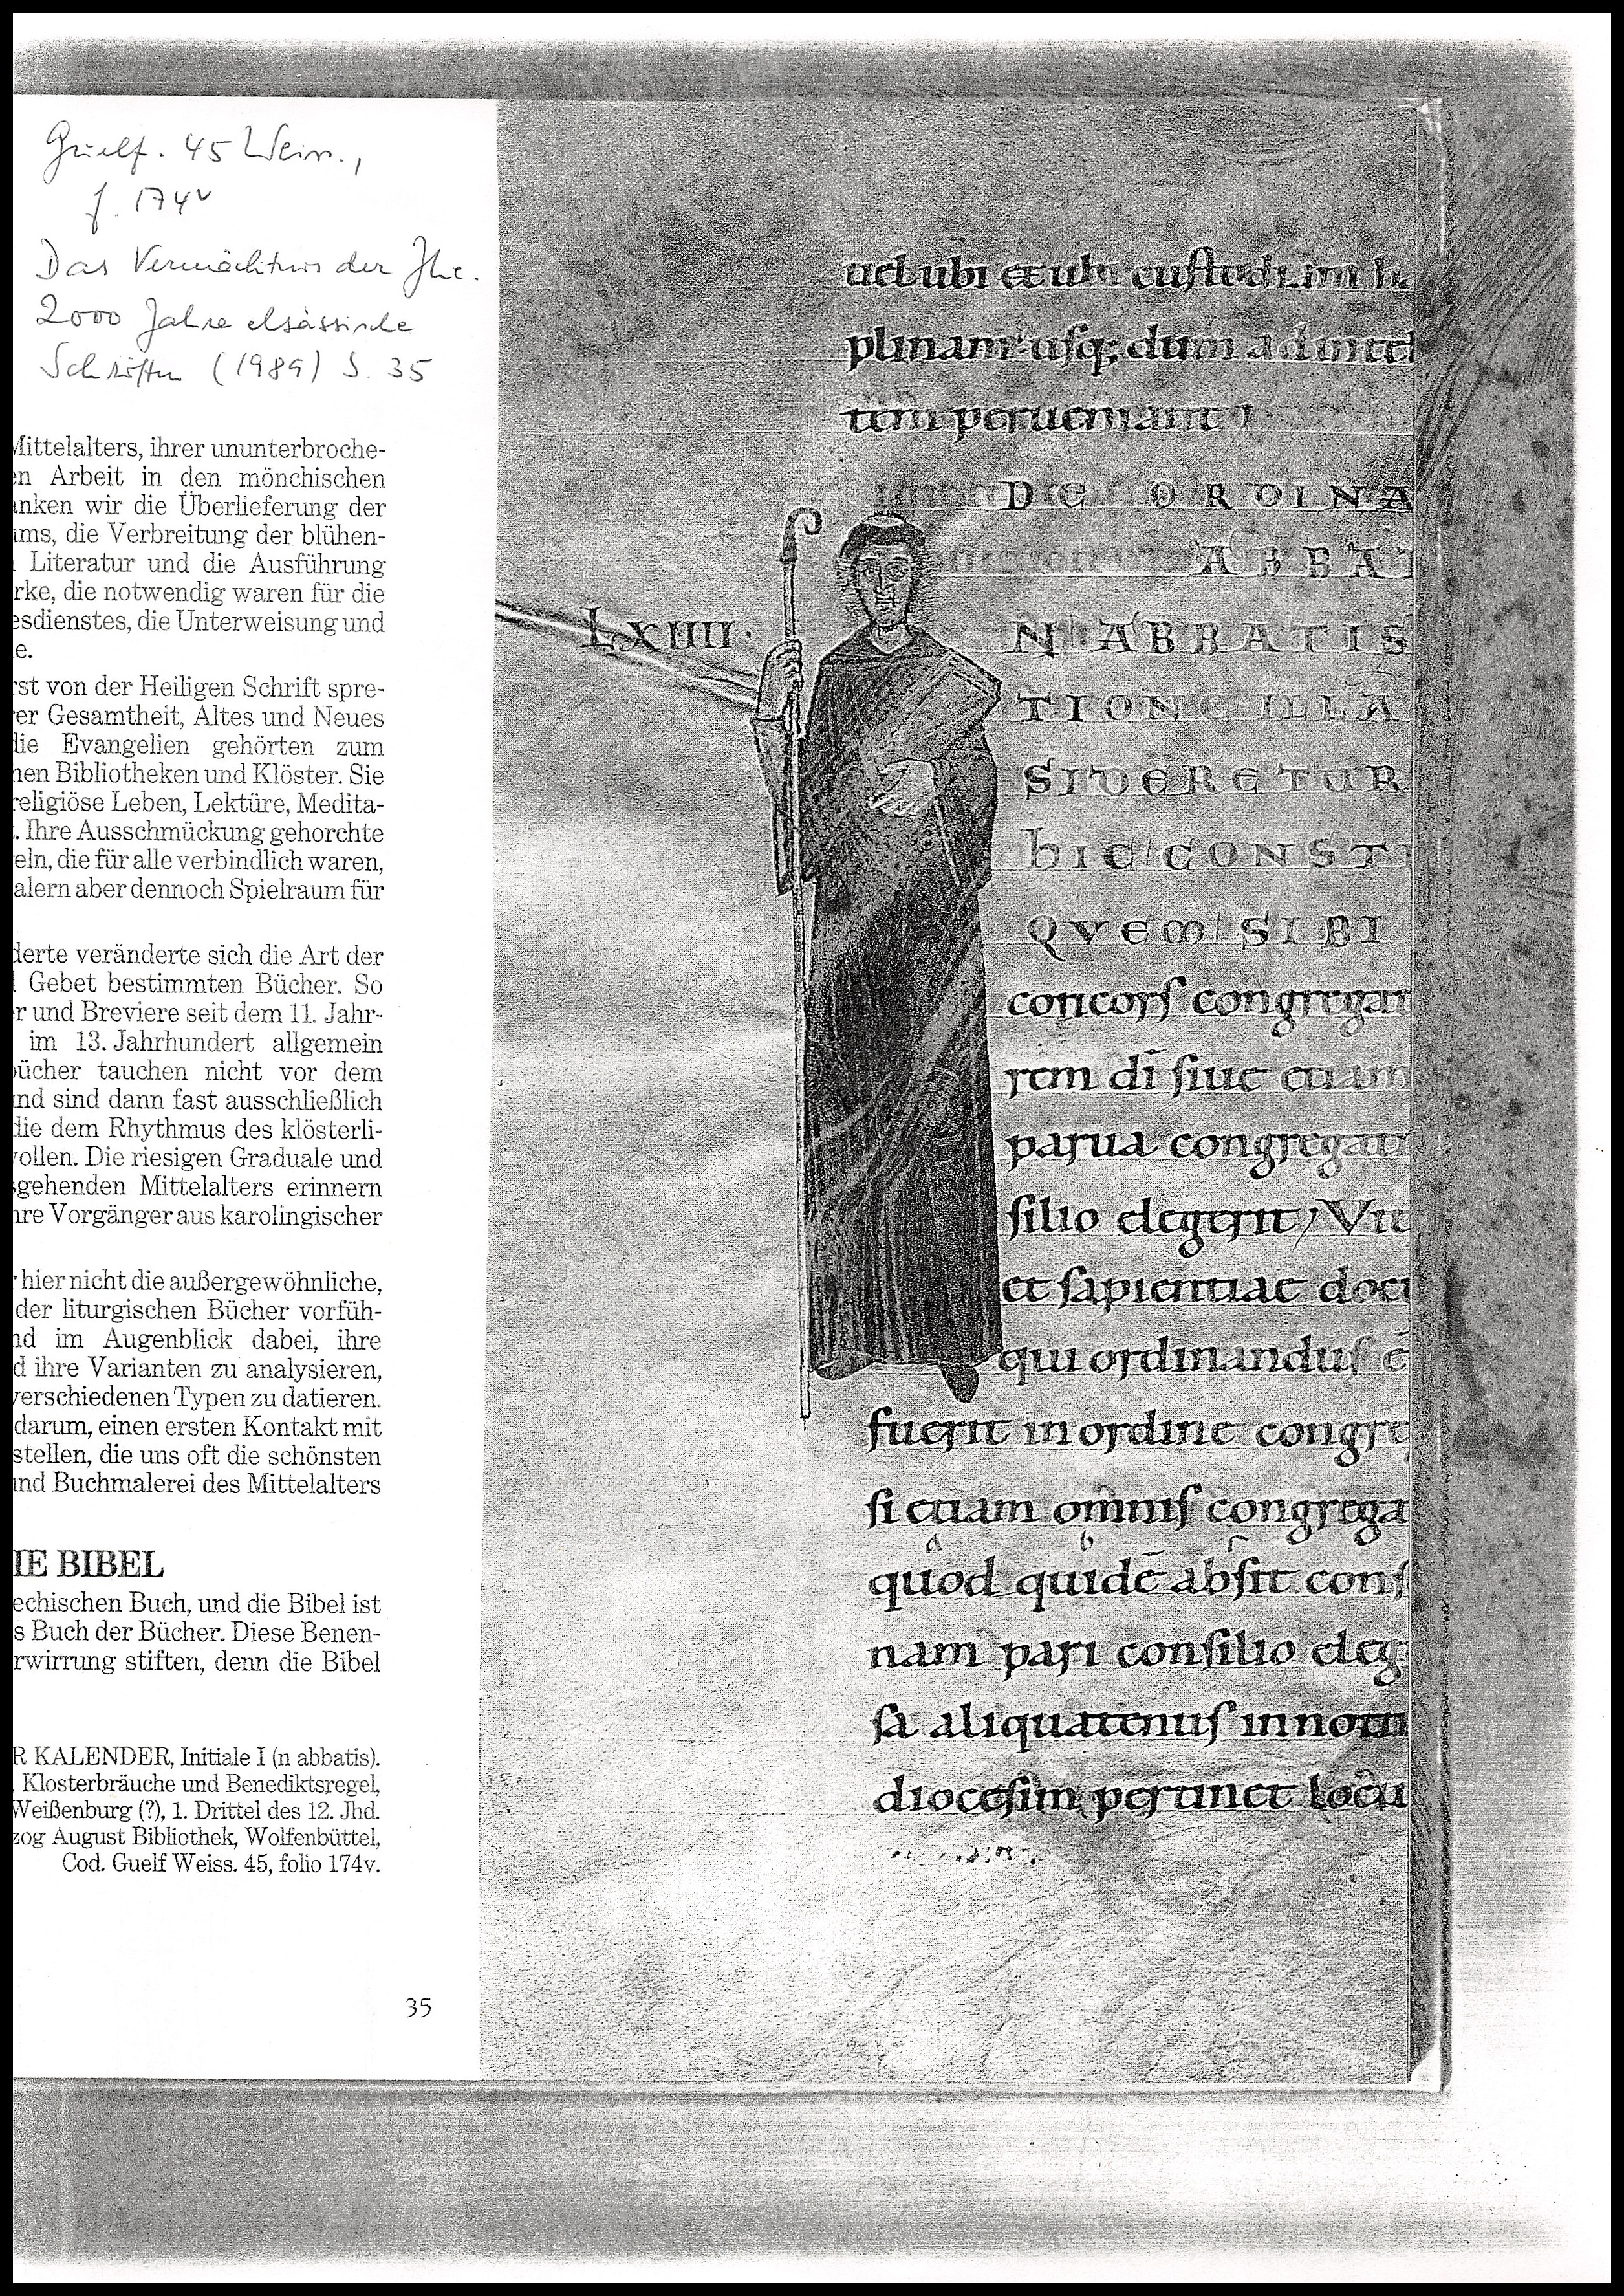 Guelf. 45 Weiss.,
f. 174v
Das Vermächtnis der Jhe.
2000 Jahre elsässische
Schriften (1989) S. 35
Mittelalters, ihrer ununterbroche-
en Arbeit in den mönchischen
anken wir die Überlieferung der
ums, die Verbreitung der blühen-
Literatur und die Ausführung
rke, die notwendig waren für die
esdienstes, die Unterweisung und
e.
rst von der Heiligen Schrift spre-
er Gesamtheit, Altes und Neues
die Evangelien gehörten zum
hen Bibliotheken und Klöster. Sie
religiöse Leben, Lektüre, Medita-
. Ihre Ausschmückung gehorchte
eln, die für alle verbindlich waren,
alern aber dennoch Spielraum für
derte veränderte sich die Art der
Gebet bestimmten Bücher. So
r und Breviere seit dem 11. Jahr-
im 13. Jahrhundert allgemein
bücher tauchen nicht vor dem
nd sind dann fast ausschließlich
die dem Rhythmus des klösterli-
ollen. Die riesigen Graduale und
sgehenden Mittelalters erinnern
hre Vorgänger aus karolingischer
hier nicht die außergewöhnliche,
der liturgischen Bücher vorfüh-
nd im Augenblick dabei, ihre
d ihre Varianten zu analysieren,
verschiedenen Typen zu datieren.
darum, einen ersten Kontakt mit
stellen, die uns oft die schönsten
und Buchmalerei des Mittelalters
IE BIBEL
echischen Buch, und die Bibel ist
s Buch der Bücher. Diese Benen-
rwirrung stiften, denn die Bibel
R KALENDER, Initiale I (n abbatis).
Klosterbräuche und Benediktsregel,
Weißenburg (?), 1. Drittel des 12. Jhd.
zog August Bibliothek, Wolfenbüttel,
Cod. Guelf Weiss. 45, folio 174v.
35
uel ubi et ubi custodiam
plinam usq; dum ad intell
tem perueniant
DE ORDINA
ABBAT
LXIIII.
N ABBATIS
TIONE ILLA
SIDERETUR
hIC CONSTI
QVEM SIBI
concors congregat
rem di siue etiam
parua congregati
silio elegerit, Vit
et sapientiae doct
qui ordinandus ē
fuerit in ordine congre
si etiam omnis congrega
quod quidē absit cons
nam pari consilio eleg
sa aliquatenus in noti
diocesim pertinet locu